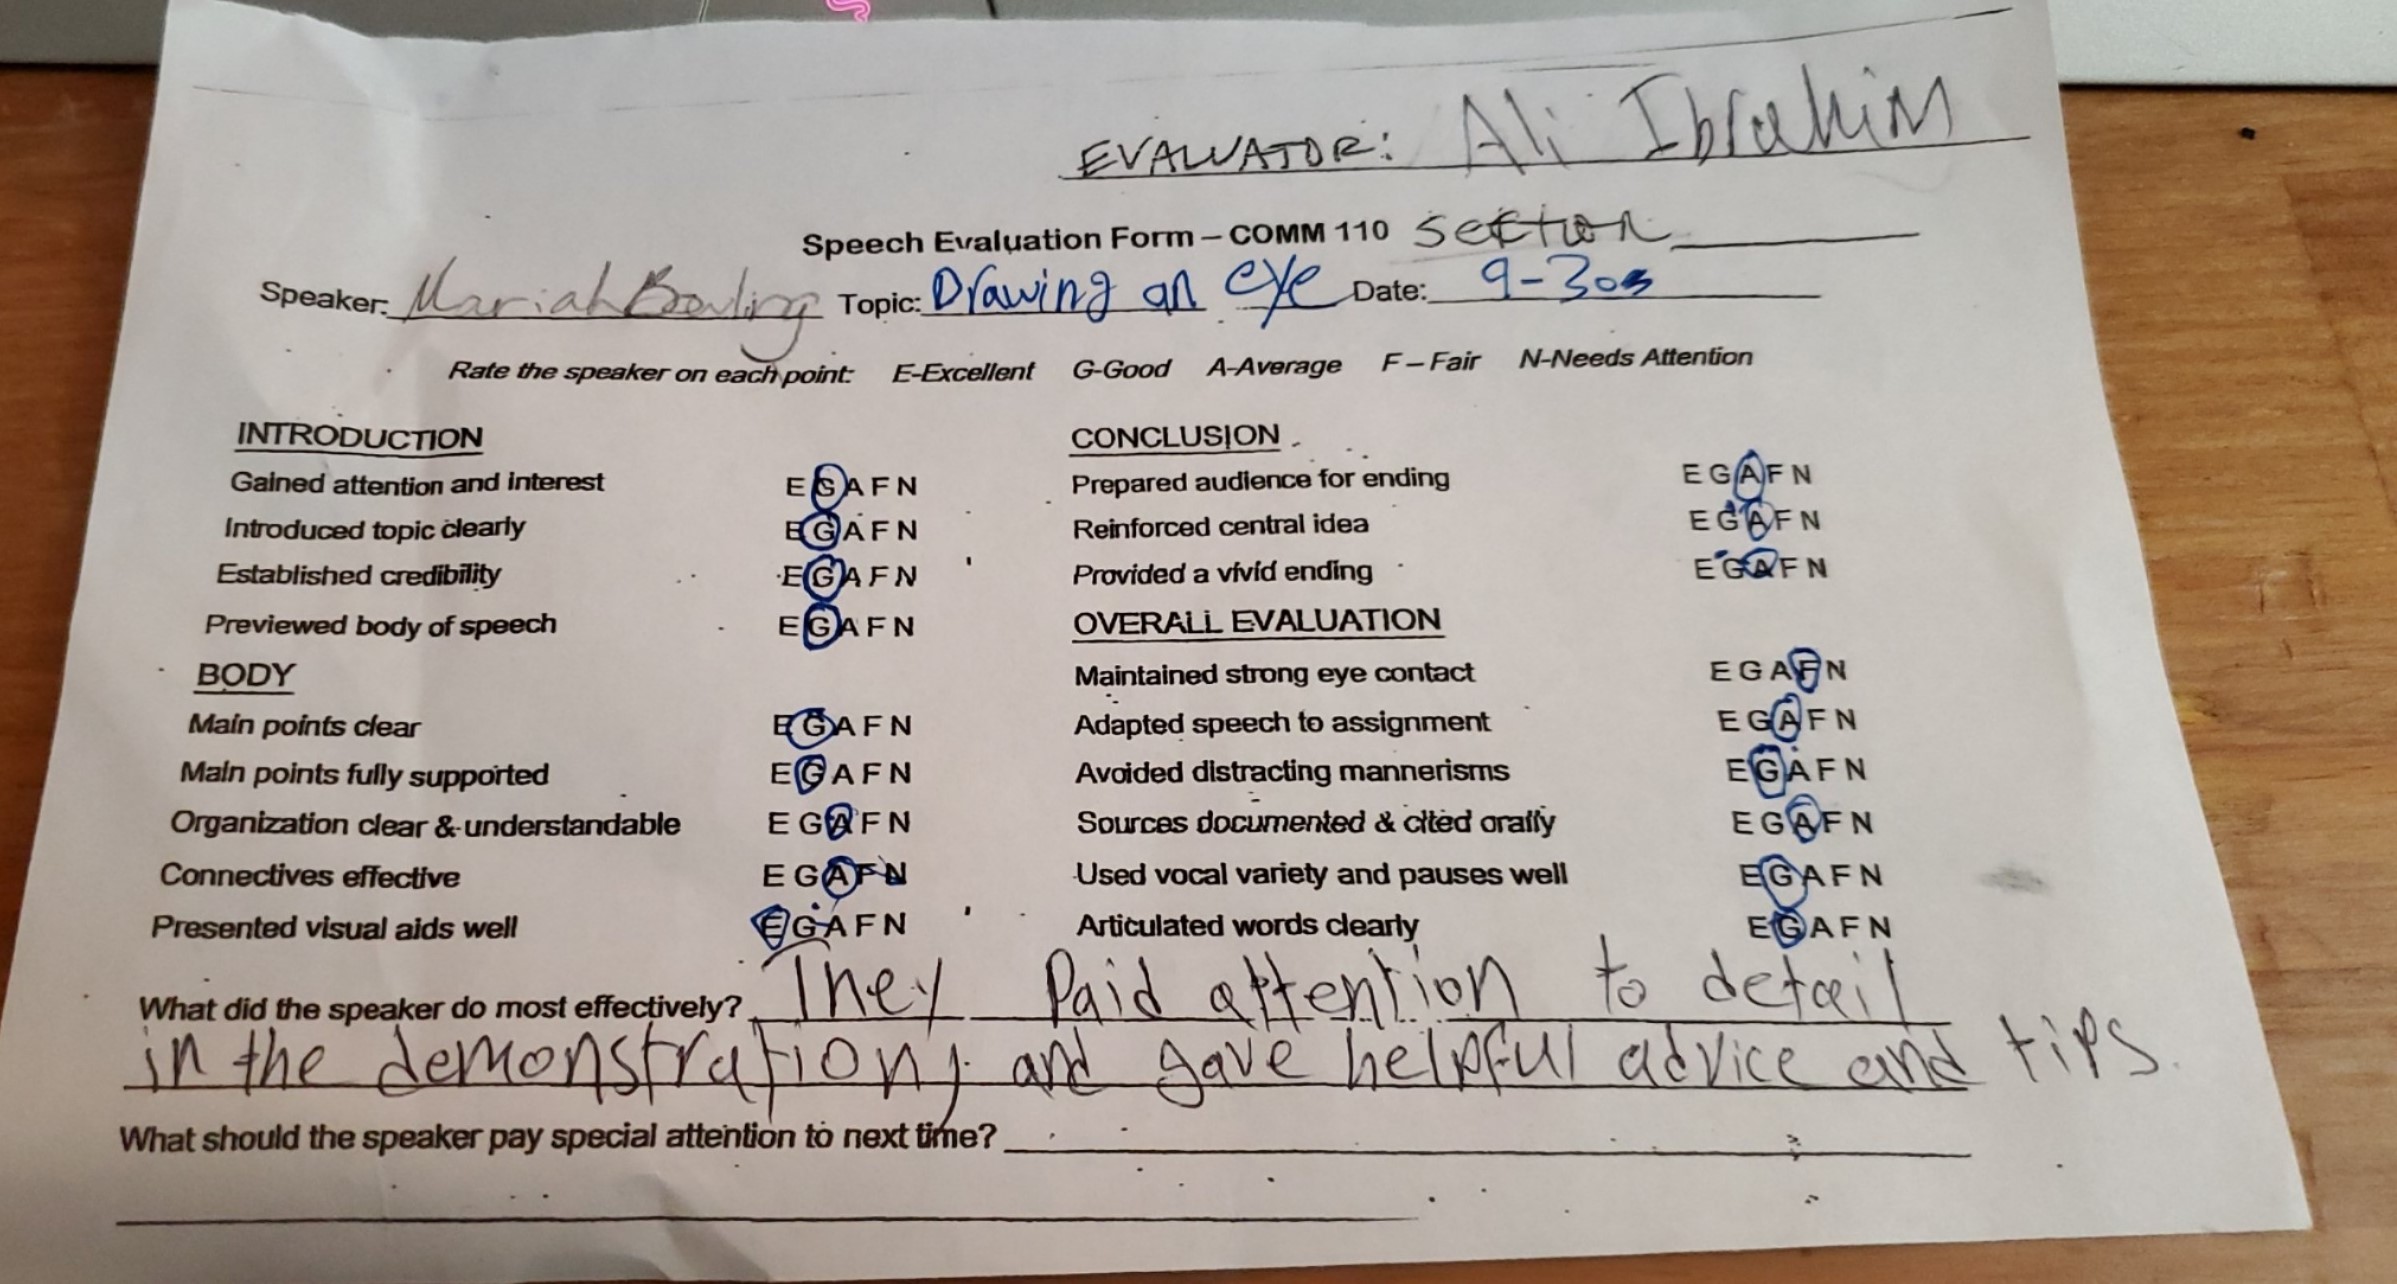 EVALUATOR: Ali Ibrahim
Speech Evaluation Form – COMM 110 section
Speaker: Mariah Bowling Topic: Drawing an eye Date: 9-30
Rate the speaker on each point: E-Excellent G-Good A-Average F – Fair N-Needs Attention
INTRODUCTION
Gained attention and interest E G A F N
Introduced topic clearly E G A F N
Established credibility E G A F N
Previewed body of speech E G A F N
BODY
Main points clear E G A F N
Main points fully supported E G A F N
Organization clear & understandable E G A F N
Connectives effective E G A F N
Presented visual aids well E G A F N
CONCLUSION
Prepared audience for ending E G A F N
Reinforced central idea E G A F N
Provided a vivid ending E G A F N
OVERALL EVALUATION
Maintained strong eye contact E G A F N
Adapted speech to assignment E G A F N
Avoided distracting mannerisms E G A F N
Sources documented & cited orally E G A F N
Used vocal variety and pauses well E G A F N
Articulated words clearly E G A F N
What did the speaker do most effectively? They Paid attention to detail
in the demonstration, and gave helpful advice and tips.
What should the speaker pay special attention to next time?